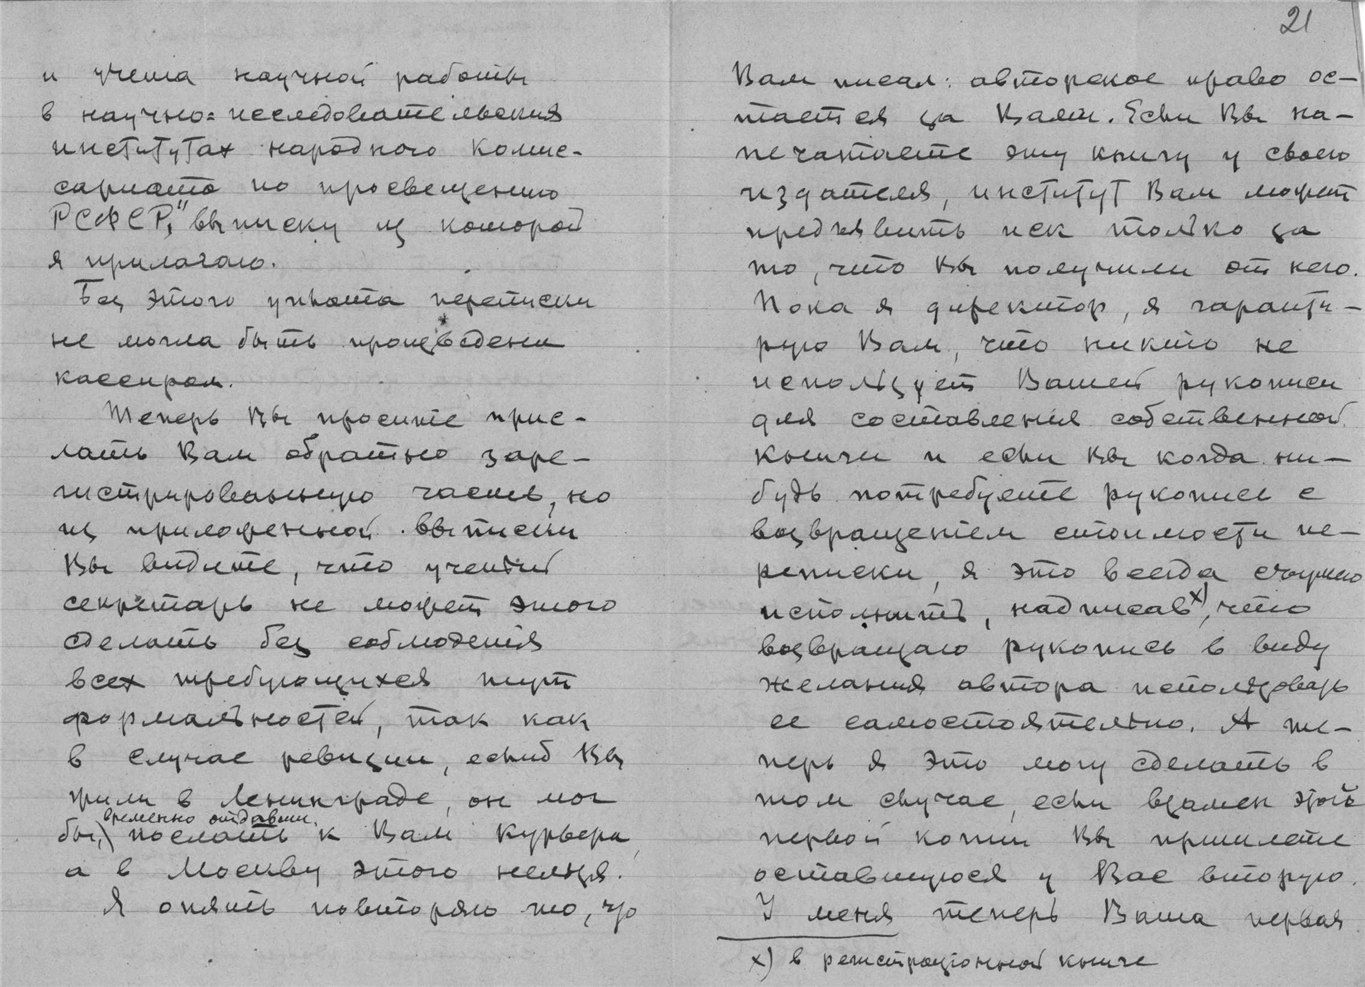 и учета научной работы
в научно=исследовательских
институтах народного комис-
сариата по просвещению
РСФСР," выписку из которой
я прилагаю.
Без этого уплата переписки
не могла быть произведена
кассиром.
Теперь Вы просите прис-
лать Вам обратно заре-
гистрированную часть, но
из приложенной выписки
Вы видите, что ученый
секретарь не может этого
сделать без соблюдения
всех требующихся тут
формальностей, так как
в случае ревизии, еслиб Вы
жили в Ленинграде, он мог
временно отдавши
бы, послать к Вам курьера,
а в Москву этого нельзя.
Я опять повторяю то, что
21
Вам писал: авторское право ос-
тается за Вами. Если Вы на-
печатаете эту книгу у своего
издателя, институт Вам может
предъявить иск только за
то, что Вы получили от него.
Пока я директор, я гаранти-
рую Вам, что никто не
использует Вашей рукописи
для составления собственной
книги и если Вы когда ни-
будь потребуете рукопись с
возвращением стоимости пе-
реписки, я это всегда
исполнить, надписав x), что
возвращаю рукопись в виду
желания автора использовать
ее самостоятельно. А те-
перь я это могу сделать в
том случае, если взамен этой
первой копии Вы пришлете
оставшуюся у Вас вторую.
У меня теперь Ваша первая
x) в регистраціонной книге